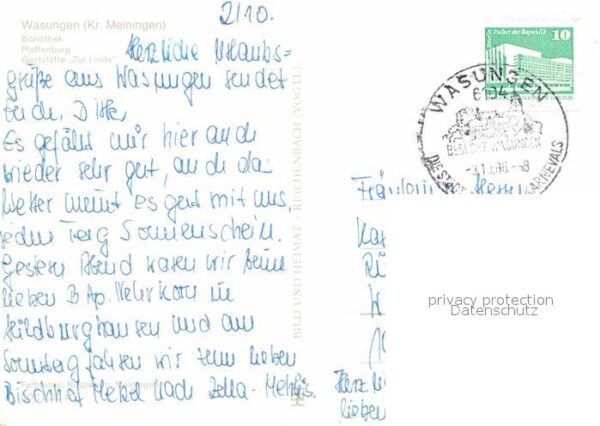 2/10.
Wasungen (Kr. Meiningen)
Bibliothek
Pfaffenburg
Gaststätte "Zur Linde"
Herzliche Urlaubs=
grüße aus Wasungen sendet
Es gefällt mir hier auch
wieder sehr gut, auch das
Wetter meint es gut mit uns,
jeden Tag Sonnenschein.
Gestern Abend waren wir beim
lieben Nehrkorn in
Hildburghausen und am
Sonntag fahren wir zum lieben
Bischhof nach Zella-Mehlis.
BILD UND HEIMAT REICHENBACH (VOGTL)
Palast der Republik
10
WASUNGEN
6104
BESUCHT WASUNGEN
DIE STADT KARNEVALS
Fräulein
privacy protection
Datenschutz
Herzli
lieben